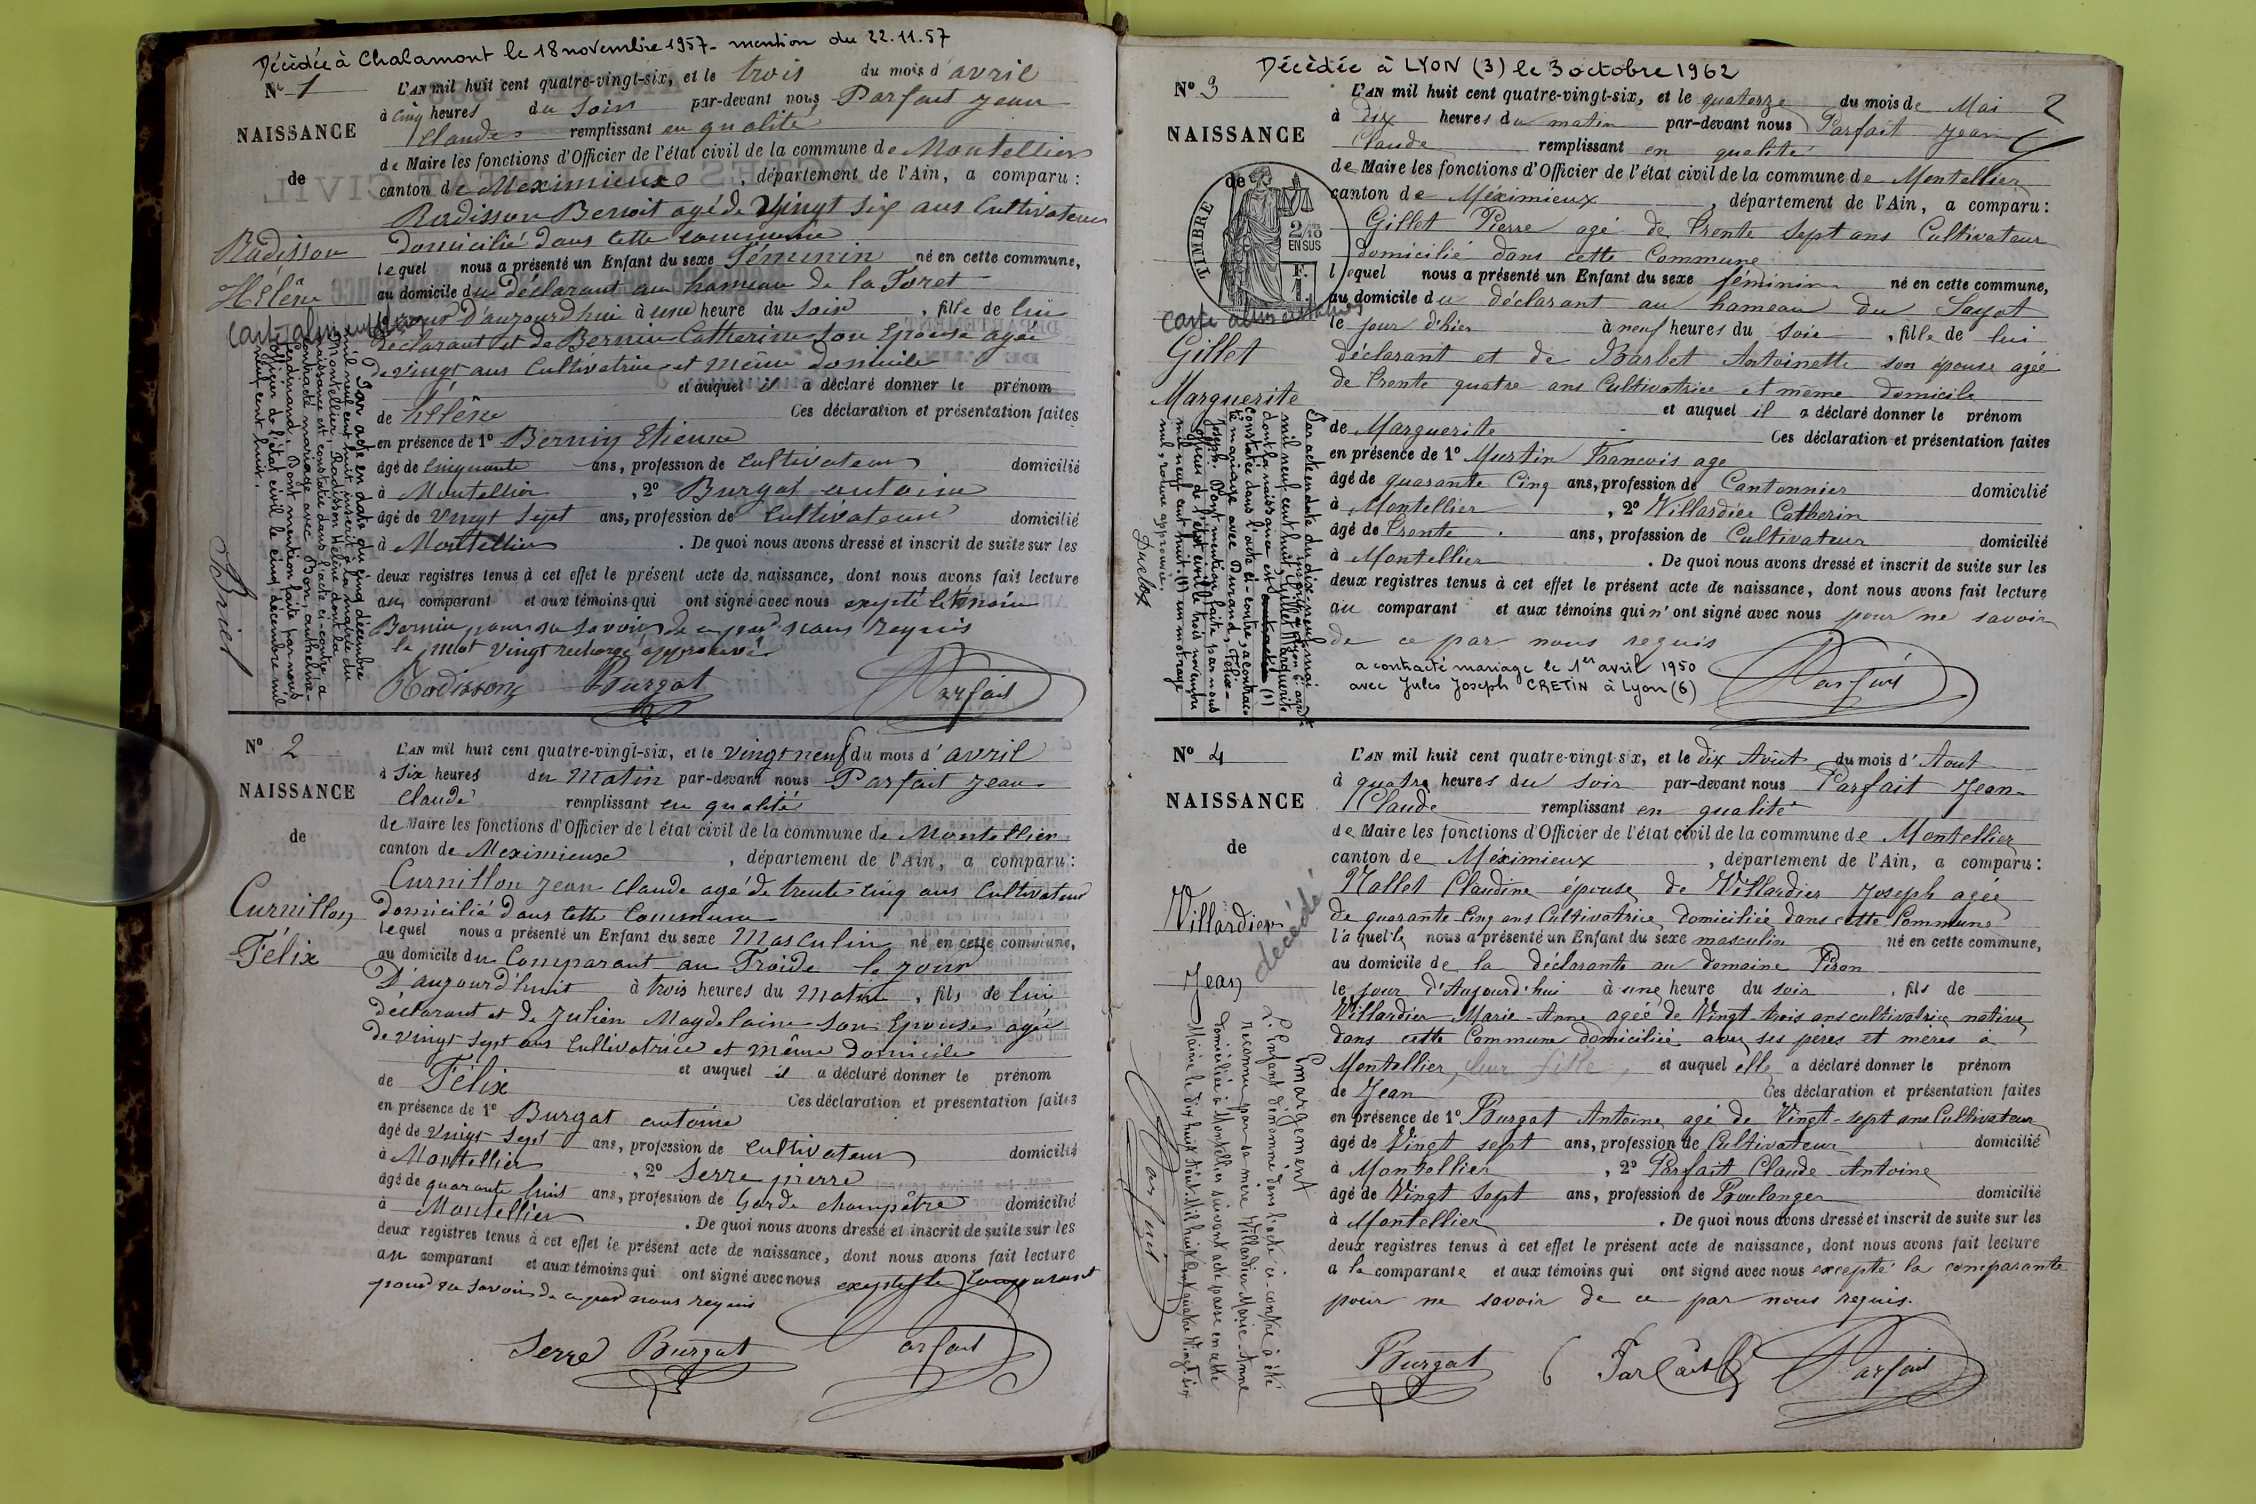 Décédée à Chalamont le 18 novembre 1957 - mention du 22.11.57
N° 1
NAISSANCE
de
Radisson
Hélène
carte alimentaire
L'AN mil huit cent quatre-vingt-six, et le trois du mois d'avril
à cinq heures du soir par-devant nous Parfait Jean
Claude remplissant en qualité
de Maire les fonctions d'Officier de l'état civil de la commune de Montellier
canton de Meximieux, département de l'Ain, a comparu :
Radisson Benoit agé de vingt six ans Cultivateur
domicilié dans cette commune
lequel nous a présenté un Enfant du sexe féminin né en cette commune,
au domicile du déclarant au hameau de la Foret
le jour d'aujourdhui à une heure du soir, fille de lui
déclarant et de Bernin Catherine son Epouse agée
de vingt ans Cultivatrice et même domicile
et auquel il a déclaré donner le prénom
de hélène Ces déclaration et présentation faites
en présence de 1° Bernin Etienne
âgé de Cinquante ans, profession de Cultivateur domicilié
à Montellier, 2° Burgat antoine
âgé de vingt sept ans, profession de Cultivateur domicilié
à Montellier. De quoi nous avons dressé et inscrit de suite sur les
deux registres tenus à cet effet le présent acte de naissance, dont nous avons fait lecture
au comparant et aux témoins qui ont signé avec nous excepté le témoin
Bernin pour ne savoir de ce par nous requis
le mot vingt rechargé approuvé
Radisson Burgat Parfait
Par acte en date du cinq décembre
mil neuf cent huit inscrit à la mairie du
Montellier, Radisson Hélène dont la
naissance est constatée dans l'acte ci-contre, a
contracté mariage avec Bon, anthelme-
Ferdinand. Dont mention faite par nous
officier de l'état civil le cinq décembre mil
neuf cent huit.
N° 2
NAISSANCE
de
Curnillon
Félix
L'AN mil huit cent quatre-vingt-six, et le vingt neuf du mois d'avril
à six heures du Matin par-devant nous Parfait Jean
Claude remplissant en qualité
de Maire les fonctions d'Officier de l'état civil de la commune de Montellier
canton de Meximieux, département de l'Ain, a comparu :
Curnillon Jean Claude agé de trente cinq ans Cultivateur
domicilié dans cette Commune
lequel nous a présenté un Enfant du sexe Masculin né en cette commune,
au domicile du Comparant au Froide le jour
D'aujourd'huit à trois heures du matin, fils de lui
déclarant et de Julien Magdelaine son Epouse agée
de vingt sept ans Cultivatrice et même domicile
et auquel il a déclaré donner le prénom
de Félix Ces déclaration et présentation faites
en présence de 1° Burgat antoine
âgé de vingt sept ans, profession de cultivateur domicilié
à Montellier, 2° Serre pierre
âgé de quarante huit ans, profession de Garde champêtre domicilié
à Montellier. De quoi nous avons dressé et inscrit de suite sur les
deux registres tenus à cet effet le présent acte de naissance, dont nous avons fait lecture
au comparant et aux témoins qui ont signé avec nous excepté le Comparant
pour ne savoir de ce par nous requis
Serre Burgat Parfait
Décédée à LYON (3) le 3 octobre 1962
2
N° 3
NAISSANCE
de
TIMBRE
2/10
EN SUS
carte alimentaires
Gillet
Marguerite
L'AN mil huit cent quatre-vingt-six, et le quatorze du mois de Mai
à dix heures du matin par-devant nous Parfait Jean
Claude remplissant en qualité
de Maire les fonctions d'Officier de l'état civil de la commune de Montellier
canton de Méximieux, département de l'Ain, a comparu :
Gillet Pierre agé de trente sept ans Cultivateur
domicilié dans cette Commune
lequel nous a présenté un Enfant du sexe féminin né en cette commune,
au domicile du déclarant au hameau du Sayot
le jour d'hier à neuf heures du soir, fille de lui
déclarant et de Barbet Antoinette son épouse agée
de trente quatre ans Cultivatrice et même domicile
et auquel il a déclaré donner le prénom
de Marguerite Ces déclaration et présentation faites
en présence de 1° Murtin Francois age
âgé de quarante Cinq ans, profession de Cantonnier domicilié
à Montellier, 2° Villardier Catherin
âgé de trente ans, profession de Cultivateur domicilié
à Montellier. De quoi nous avons dressé et inscrit de suite sur les
deux registres tenus à cet effet le présent acte de naissance, dont nous avons fait lecture
au comparant et aux témoins qui n'ont signé avec nous pour ne savoir
de ce par nous requis
a contracté mariage le 1er avril 1950
avec Jules Joseph CRETIN à Lyon (6)
Parfait
Par acte en date du dix-neuf mai
mil neuf cent huit, inscrit à Lyon 6e arrdt, Gillet Marguerite
dont la naissance est (1)
constatée dans l'acte ci-contre, a contracté
mariage avec Durand, Félix-
Joseph. Dont mention faite par nous
officier de l'état civil le trois novembre
mil neuf cent huit. (1) un mot rayé
nul, rature approuvée.
Duclos
N° 4
NAISSANCE
de
Villardier
Jean
décédé
L'AN mil huit cent quatre-vingt-six, et le dix Août du mois d'Aout
à quatre heures du soir par-devant nous Parfait Jean
Claude remplissant en qualité
de Maire les fonctions d'Officier de l'état civil de la commune de Montellier
canton de Méximieux, département de l'Ain, a comparu :
Mallet Claudine épouse de Villardier Joseph agée
de quarante Cinq ans Cultivatrice domiciliée dans cette Commune
laquelle nous a présenté un Enfant du sexe masculin né en cette commune,
au domicile de la déclarante au domaine Pison
le jour d'Aujourd'hui à une heure du soir, fils de
Villardier Marie-Anne agée de Vingt-trois ans cultivatrice native
dans cette Commune domiciliée avec ses pères et mères à
Montellier, leur fille, et auquel elle a déclaré donner le prénom
de Jean Ces déclaration et présentation faites
en présence de 1° Burgat Antoine agé de Vingt-sept ans Cultivateur
âgé de Vingt sept ans, profession de Cultivateur domicilié
à Montellier, 2° Parfait Claude-Antoine
âgé de Vingt sept ans, profession de Boulanger domicilié
à Montellier. De quoi nous avons dressé et inscrit de suite sur les
deux registres tenus à cet effet le présent acte de naissance, dont nous avons fait lecture
a la comparante et aux témoins qui ont signé avec nous excepté la comparante
pour ne savoir de ce par nous requis.
Burgat Parfait Parfait
Emargement
L'Enfant dénommé dans l'acte ci-contre à été
reconnu par sa mère Villardier Marie-Anne
domiciliée à Montellier suivant acte passé en cette
Mairie le dix huit Août Mil huit Cent quatre Vingt six
Parfait